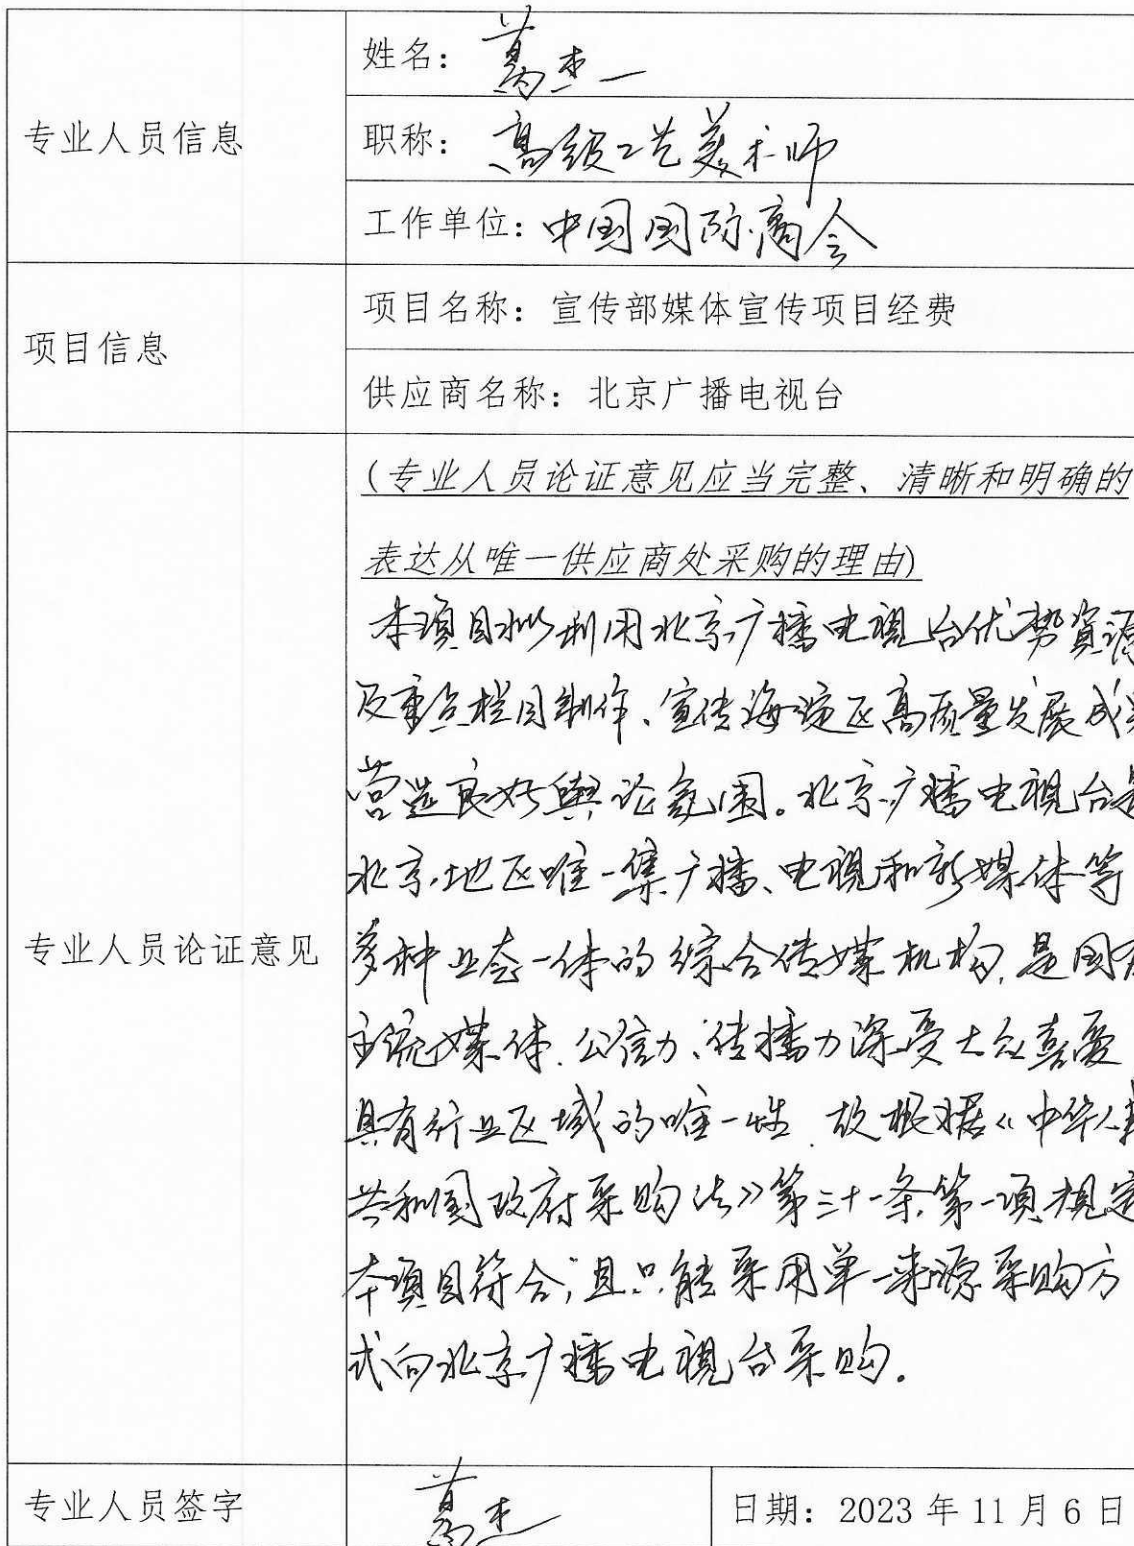 专业人员信息
姓名：葛杰
职称：高级工艺美术师
工作单位：中国国际商会
项目信息
项目名称：宣传部媒体宣传项目经费
供应商名称：北京广播电视台
专业人员论证意见
(专业人员论证意见应当完整、清晰和明确的
表达从唯一供应商处采购的理由)
本项目拟利用北京广播电视台优势资源
及重点栏目制作、宣传海淀区高质量发展成果
营造良好舆论氛围。北京广播电视台是
北京地区唯一集广播、电视和新媒体等
多种业态一体的综合传媒机构，是国有
主流媒体．公信力、传播力深受大众喜爱
具有行业区域的唯一性．故根据《中华人民
共和国政府采购法》第三十一条第一项规定
本项目符合，且只能采用单一来源采购方
式向北京广播电视台采购。
专业人员签字
葛杰
日期：2023 年 11 月 6 日